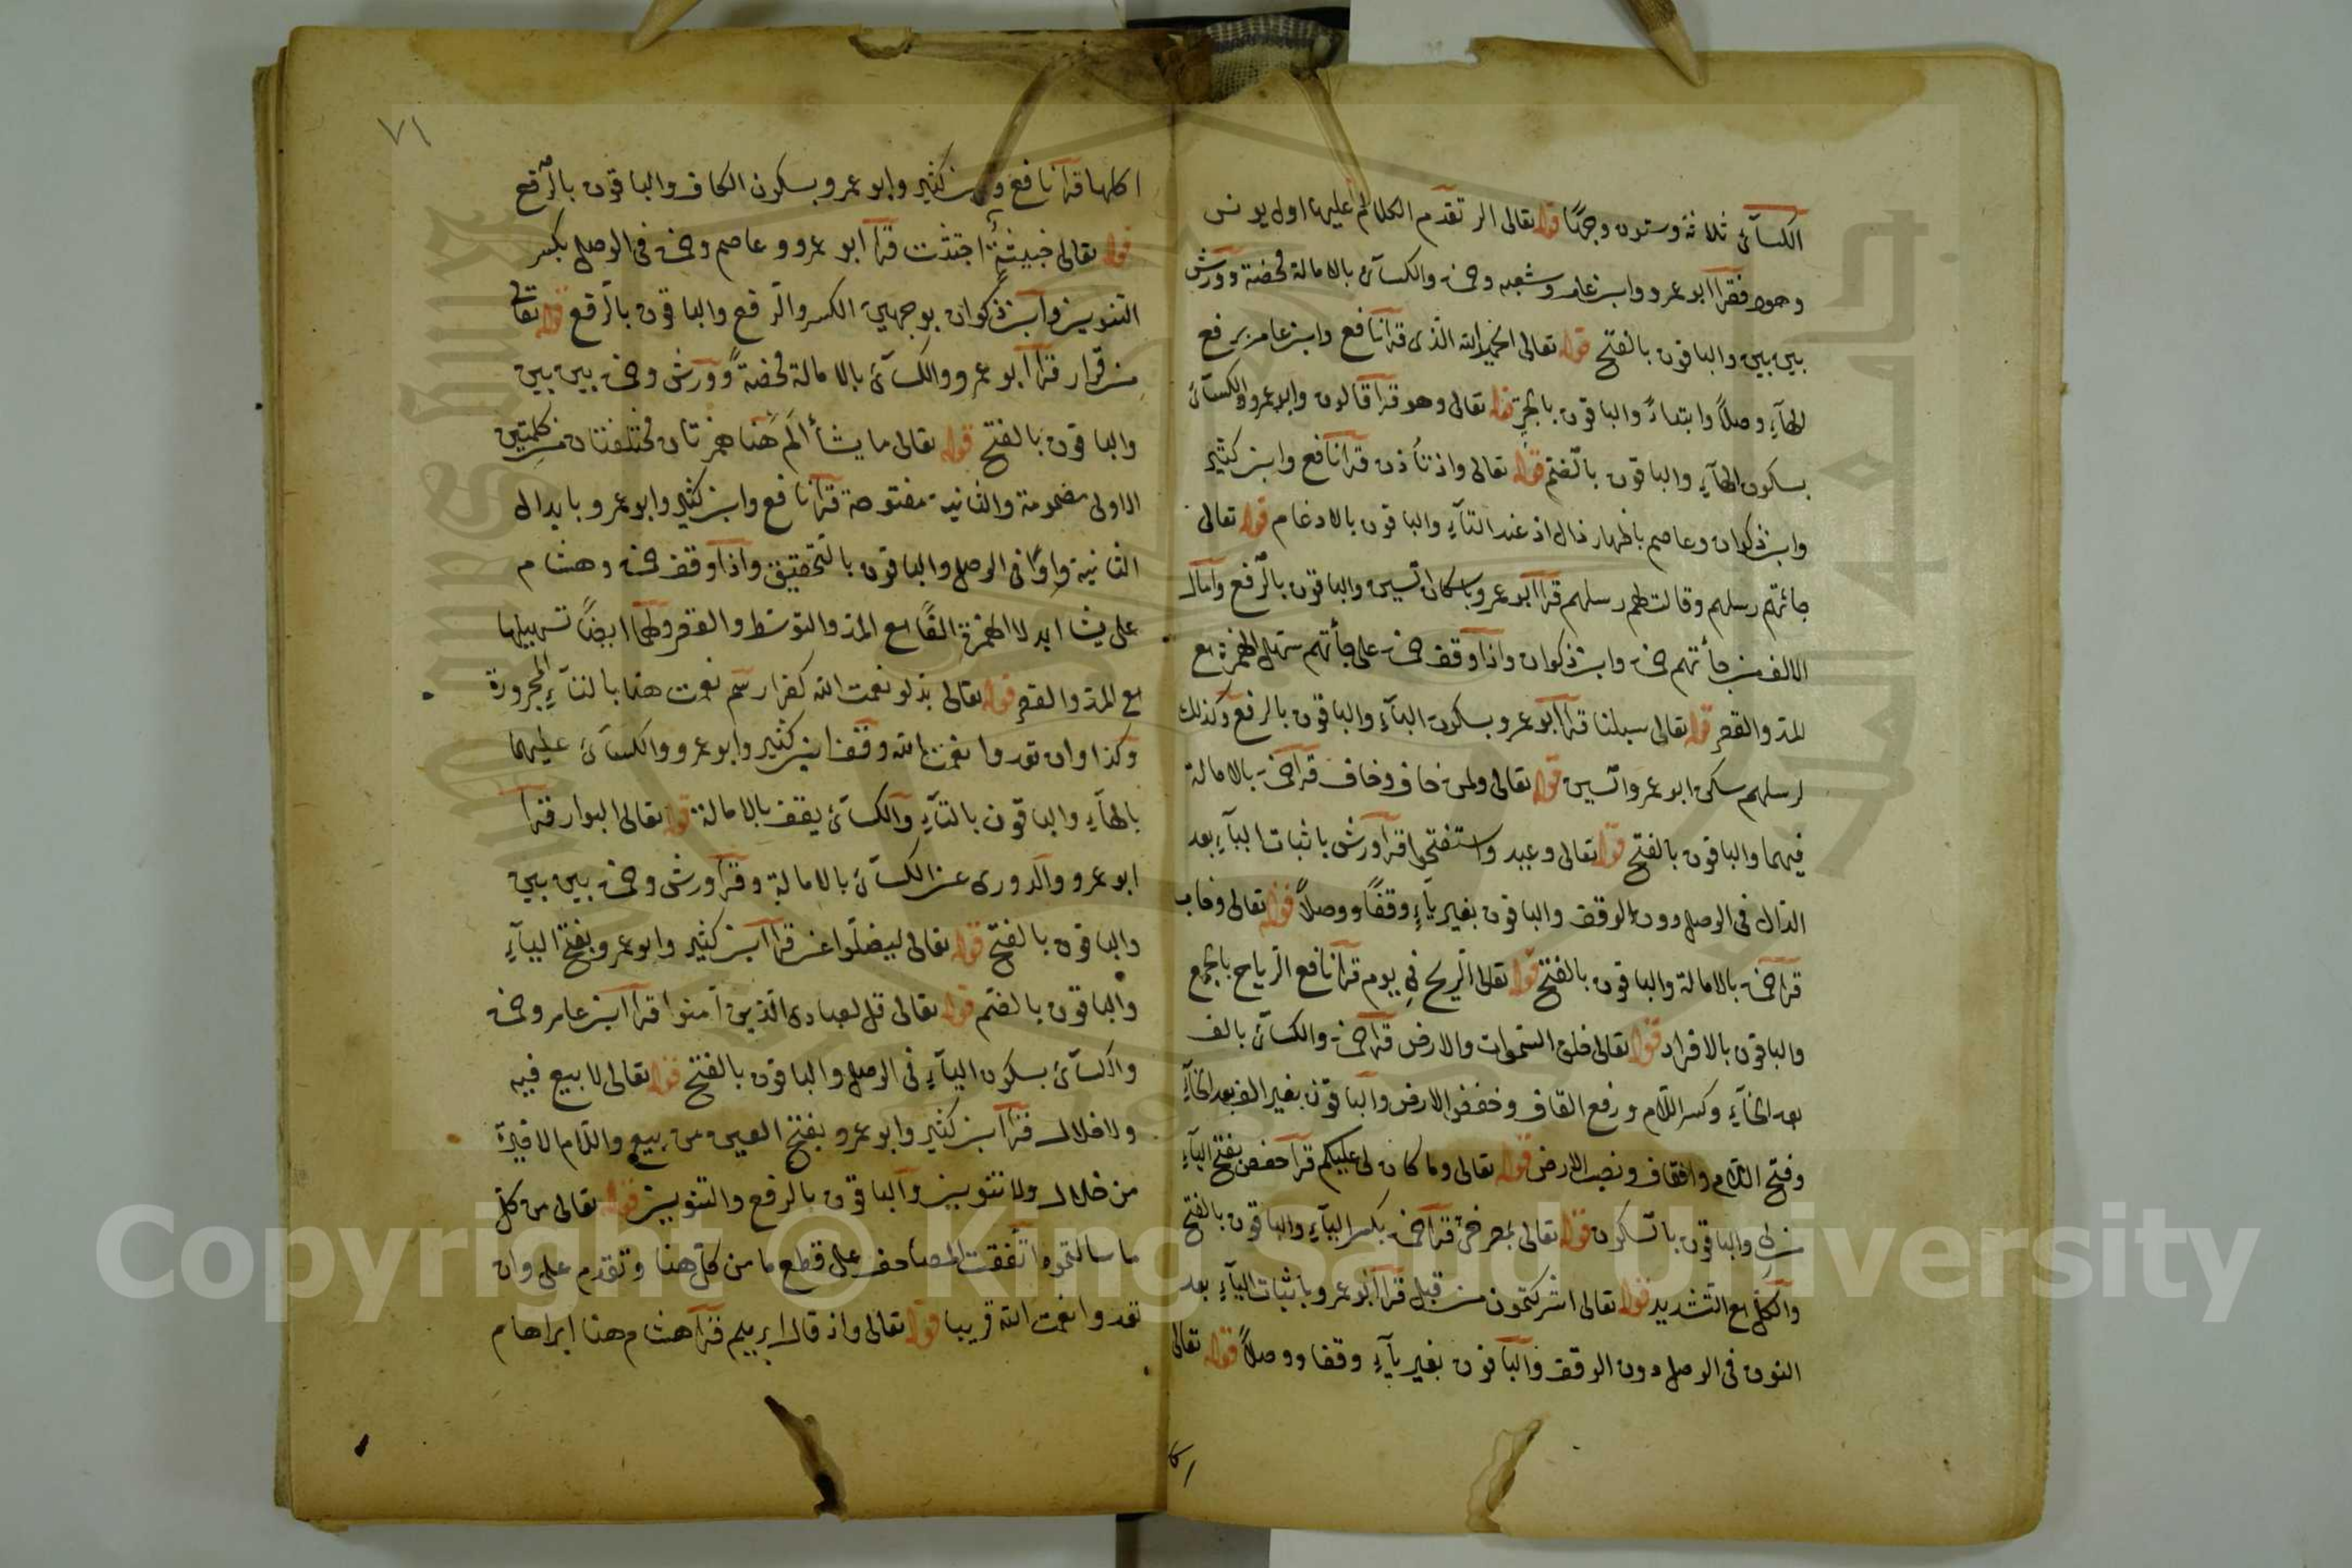 الكسآئى ثلاثة وستون وجهًا قوله تعالى الر تقدم الكلام عليها اول يونس
وهود فقرا ابو عمرو وابن عامر وشعبه وحمزة والكسآئ بالامالة محضة وورش
بين بين والباقون بالفتح قوله تعالى الحميد الله الذى قرآ نافع وابن عامر برفع
الهآءِ وصلًا وابتداءً والباقون بالجرّ قوله تعالى وهو قرآ قالون وابو عمرو والكسآئ
بسكون الهآءِ والباقون بالضّم قوله تعالى واذ تأذن قرآ نافع وابن كثير
وابن ذكوان وعاصم باظهار ذال اذ عند التآءِ والباقون بالادغام قوله تعالى
جائتهم رسلهم وقالت لهم رسلهم قرآ ابو عمرو باسكان السّين والباقون بالرّفع وآمال
الالف من جأتهم حمزة وابن ذكوان واذآ وقف حمزة على جأتهم سهّل الهمزة مع
المدّ والقصر قوله تعالى سبلنا قرآ ابو عمرو بسكون البآءِ والباقون بالرفع وكذلك
لرسلهم سكن ابو عمرو السّين قوله تعالى ولمن خاف وخاف قرآ حمزة بالامالة
فيهما والباقون بالفتح قوله تعالى وعيد واستفتحوا قرآ ورش باثبات اليآءِ بعد
الدّال فى الوصل دون الوقف والباقون بغير يآءٍ وقفًا ووصلًا قوله تعالى وخاب
قرآ حمزة بالامالة والباقون بالفتح قوله تعالى الرّيح فى يوم قرآ نافع الرّياح بالجمع
والباقون بالافراد قوله تعالى خلق السّموات والارض قرآ حمزة والكسآئ بالف
بعد الخآءِ وكسر اللّام ورفع القاف وخفضوا الارض والباقون بغير الف بعد الخآءِ
وفتح اللّام والقاف ونصب الارض قوله تعالى وما كان لى عليكم قرآ حفص بفتح اليآءِ
من لى والباقون بالسّكون قوله تعالى بمصرخىّ قرآ حمزة بكسر اليآءِ والباقون بالفتح
والكلّ مع التّشديد قوله تعالى اشركتمون من قبل قرآ ابو عمرو باثبات اليآءِ بعد
النون فى الوصل دون الوقف والباقون بغير يآءٍ وقفا ووصلًا قوله تعالى
٧١
اكلها قرآ نافع وابن كثير وابو عمرو بسكون الكاف والباقون بالرّفع
قوله تعالى خبيثةٍ اجتثت قرآ ابو عمرو وعاصم وحمزة فى الوصل بكسر
التنوين وابن ذكوان بوجهين الكسر والرّفع والباقون بالرّفع قوله تعالى
من قرار قرآ ابو عمرو والكسآئ بالامالة محضةً وورش وحمزة بين بين
والباقون بالفتح قوله تعالى ما يشآء ألم هنا همزتان مختلفتان من كلمتين
الاولى مضمومة والثانية مفتوحة قرآ نافع وابن كثير وابو عمرو بابدال
الثانية واوًا فى الوصل والباقون بالتّحقيق واذا وقف حمزة وهشام
على يشا ابدلا الهمزة الفًا مع المدّ والتوسّط والقصر ولهما ايضًا تسهيلها
مع المدّ والقصر قوله تعالى بدلو نعمت الله كفرا رسم نعمت هنا بالتآءِ المجرورة
وكذا وان تعدوا نعمت الله وقف ابن كثير وابو عمرو والكسآئ عليهما
بالهآءِ والباقون بالتآءِ والكسآئ يقف بالامالة قوله تعالى البوار قرآ
ابو عمرو والدورى عن الكسآئ بالامالة وقرآ ورش وحمزة بين بين
والباقون بالفتح قوله تعالى ليضلّوا عن قرآ ابن كثير وابو عمرو بفتح اليآءِ
والباقون بالضّم قوله تعالى قل لعبادى الّذين آمنوا قرآ ابن عامر وحمزة
والكسآئ بسكون اليآءِ فى الوصل والباقون بالفتح قوله تعالى لا بيع فيه
ولا خلال قرآ ابن كثير وابو عمرو بفتح العين من بيع واللّام الاخيرة
من خلال ولا تنوين والباقون بالرفع والتنوين قوله تعالى من كلّ
ما سالتموه اتّفقت المصاحف على قطع ما من كلّ هنا وتقدم على وان
تعدوا نعمت الله قريبا قوله تعالى واذ قال ابرهيم قرآ هشام هنا ابراهام
Copyright © King Saud University